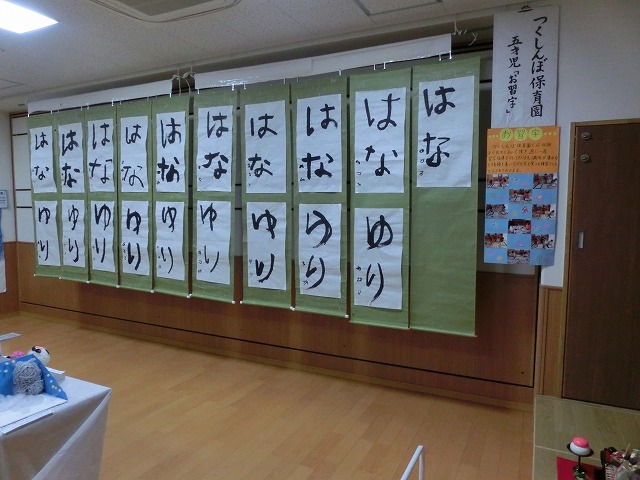 つくしんぼ保育園
五才児「お習字」
お習字
はな
はな
はな
はな
はな
はな
はな
はな
はな
はな
ゆり
ゆり
ゆり
ゆり
ゆり
ゆり
ゆり
ゆり
ゆり